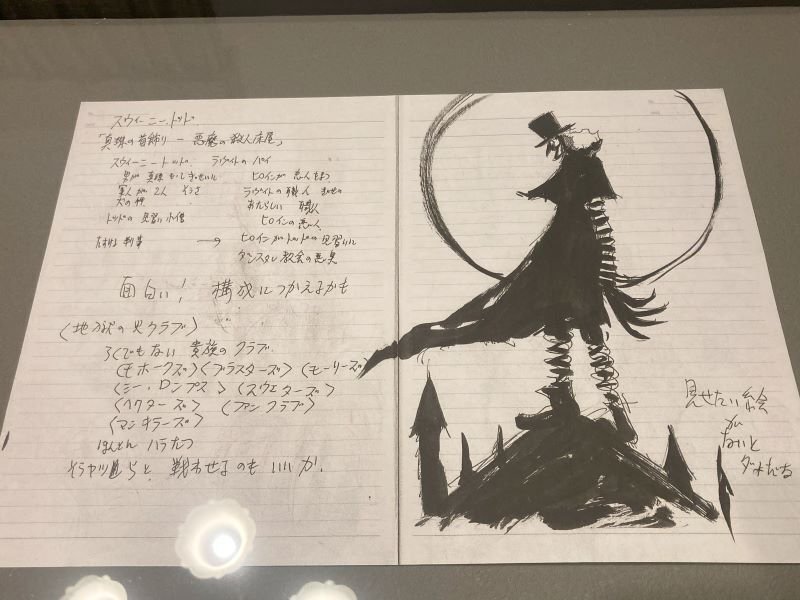 スウィーニー・トッド
「真珠の首飾り － 悪魔の殺人床屋」
スウィーニートッド ラヴィットの パイ
男が 真珠 ヒロインが 恋人をまつ
軍人が 2人 そうさ ラヴィトの 職人
犬の あたらしい 職人
トッドの 見習い小僧 ヒロインの 恋人
判事 → ヒロインがトッドの見習いに
ダンスタン 教会の悪臭
面白い！ 構成につかえるかも
〈地獄の火クラブ〉
ろくでもない 貴族のクラブ
〈モホークズ〉〈ブラスターズ〉〈モーリーズ〉
〈シー・ロンプス〉〈スウェターズ〉
〈ヘクターズ〉 〈ファンクラブ〉
〈マンキラーズ〉
ほとんど ハラたつ
そうヤツらと、戦わせるのもいいか。
見せたい絵
が
ないと
ダメだな